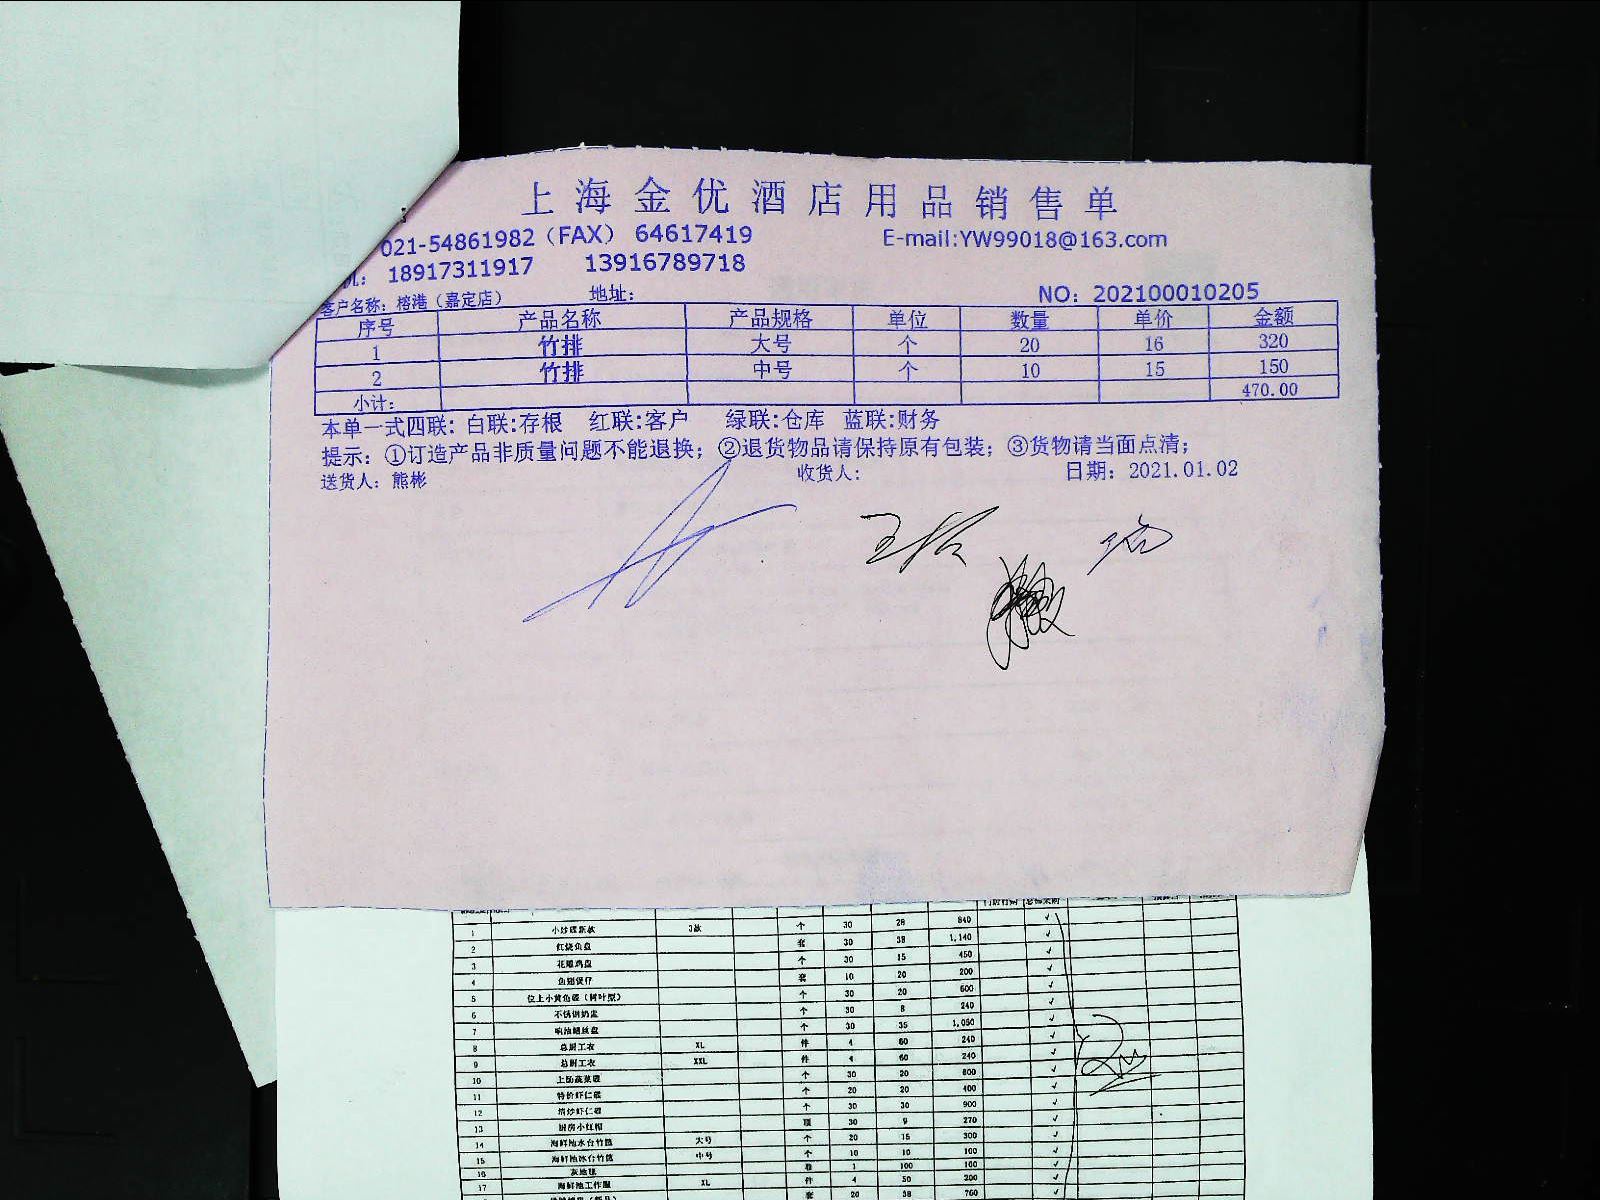 上海金优酒店用品销售单
021-54861982（FAX） 64617419 E-mail:YW99018@163.com
机： 18917311917 13916789718
客户名称: 榕港（嘉定店） 地址: NO: 202100010205
序号 产品名称 产品规格 单位 数量 单价 金额
1 竹排 大号 个 20 16 320
2 竹排 中号 个 10 15 150
小计: 470.00
本单一式四联: 白联:存根 红联:客户 绿联:仓库 蓝联:财务
提示: ①订造产品非质量问题不能退换; ②退货物品请保持原有包装; ③货物请当面点清;
送货人: 熊彬 收货人: 日期: 2021.01.02
1 3款 个 30 28 840
2 红烧鱼盘 套 30 38 1,140
3 花雕鸡盘 个 30 15 450
4 鱼翅煲仔 套 10 20 200
5 位上小黄鱼碟（树叶型） 个 30 20 600
6 个 30 8 240
7 响油鳝丝盘 个 30 35 1,050
8 总厨工衣 XL 件 4 60 240
9 总厨工衣 XXL 件 4 60 240
10 上汤蔬菜碟 个 30 20 600
11 特价虾仁碟 个 20 20 400
12 清炒虾仁碟 个 30 30 900
13 厨房小红帽 顶 30 9 270
14 大号 个 20 15 300
15 中号 个 10 10 100
16 卷 1 100 100
17 海鲜池工作服 XL 件 4 50 200
套 20 38 760